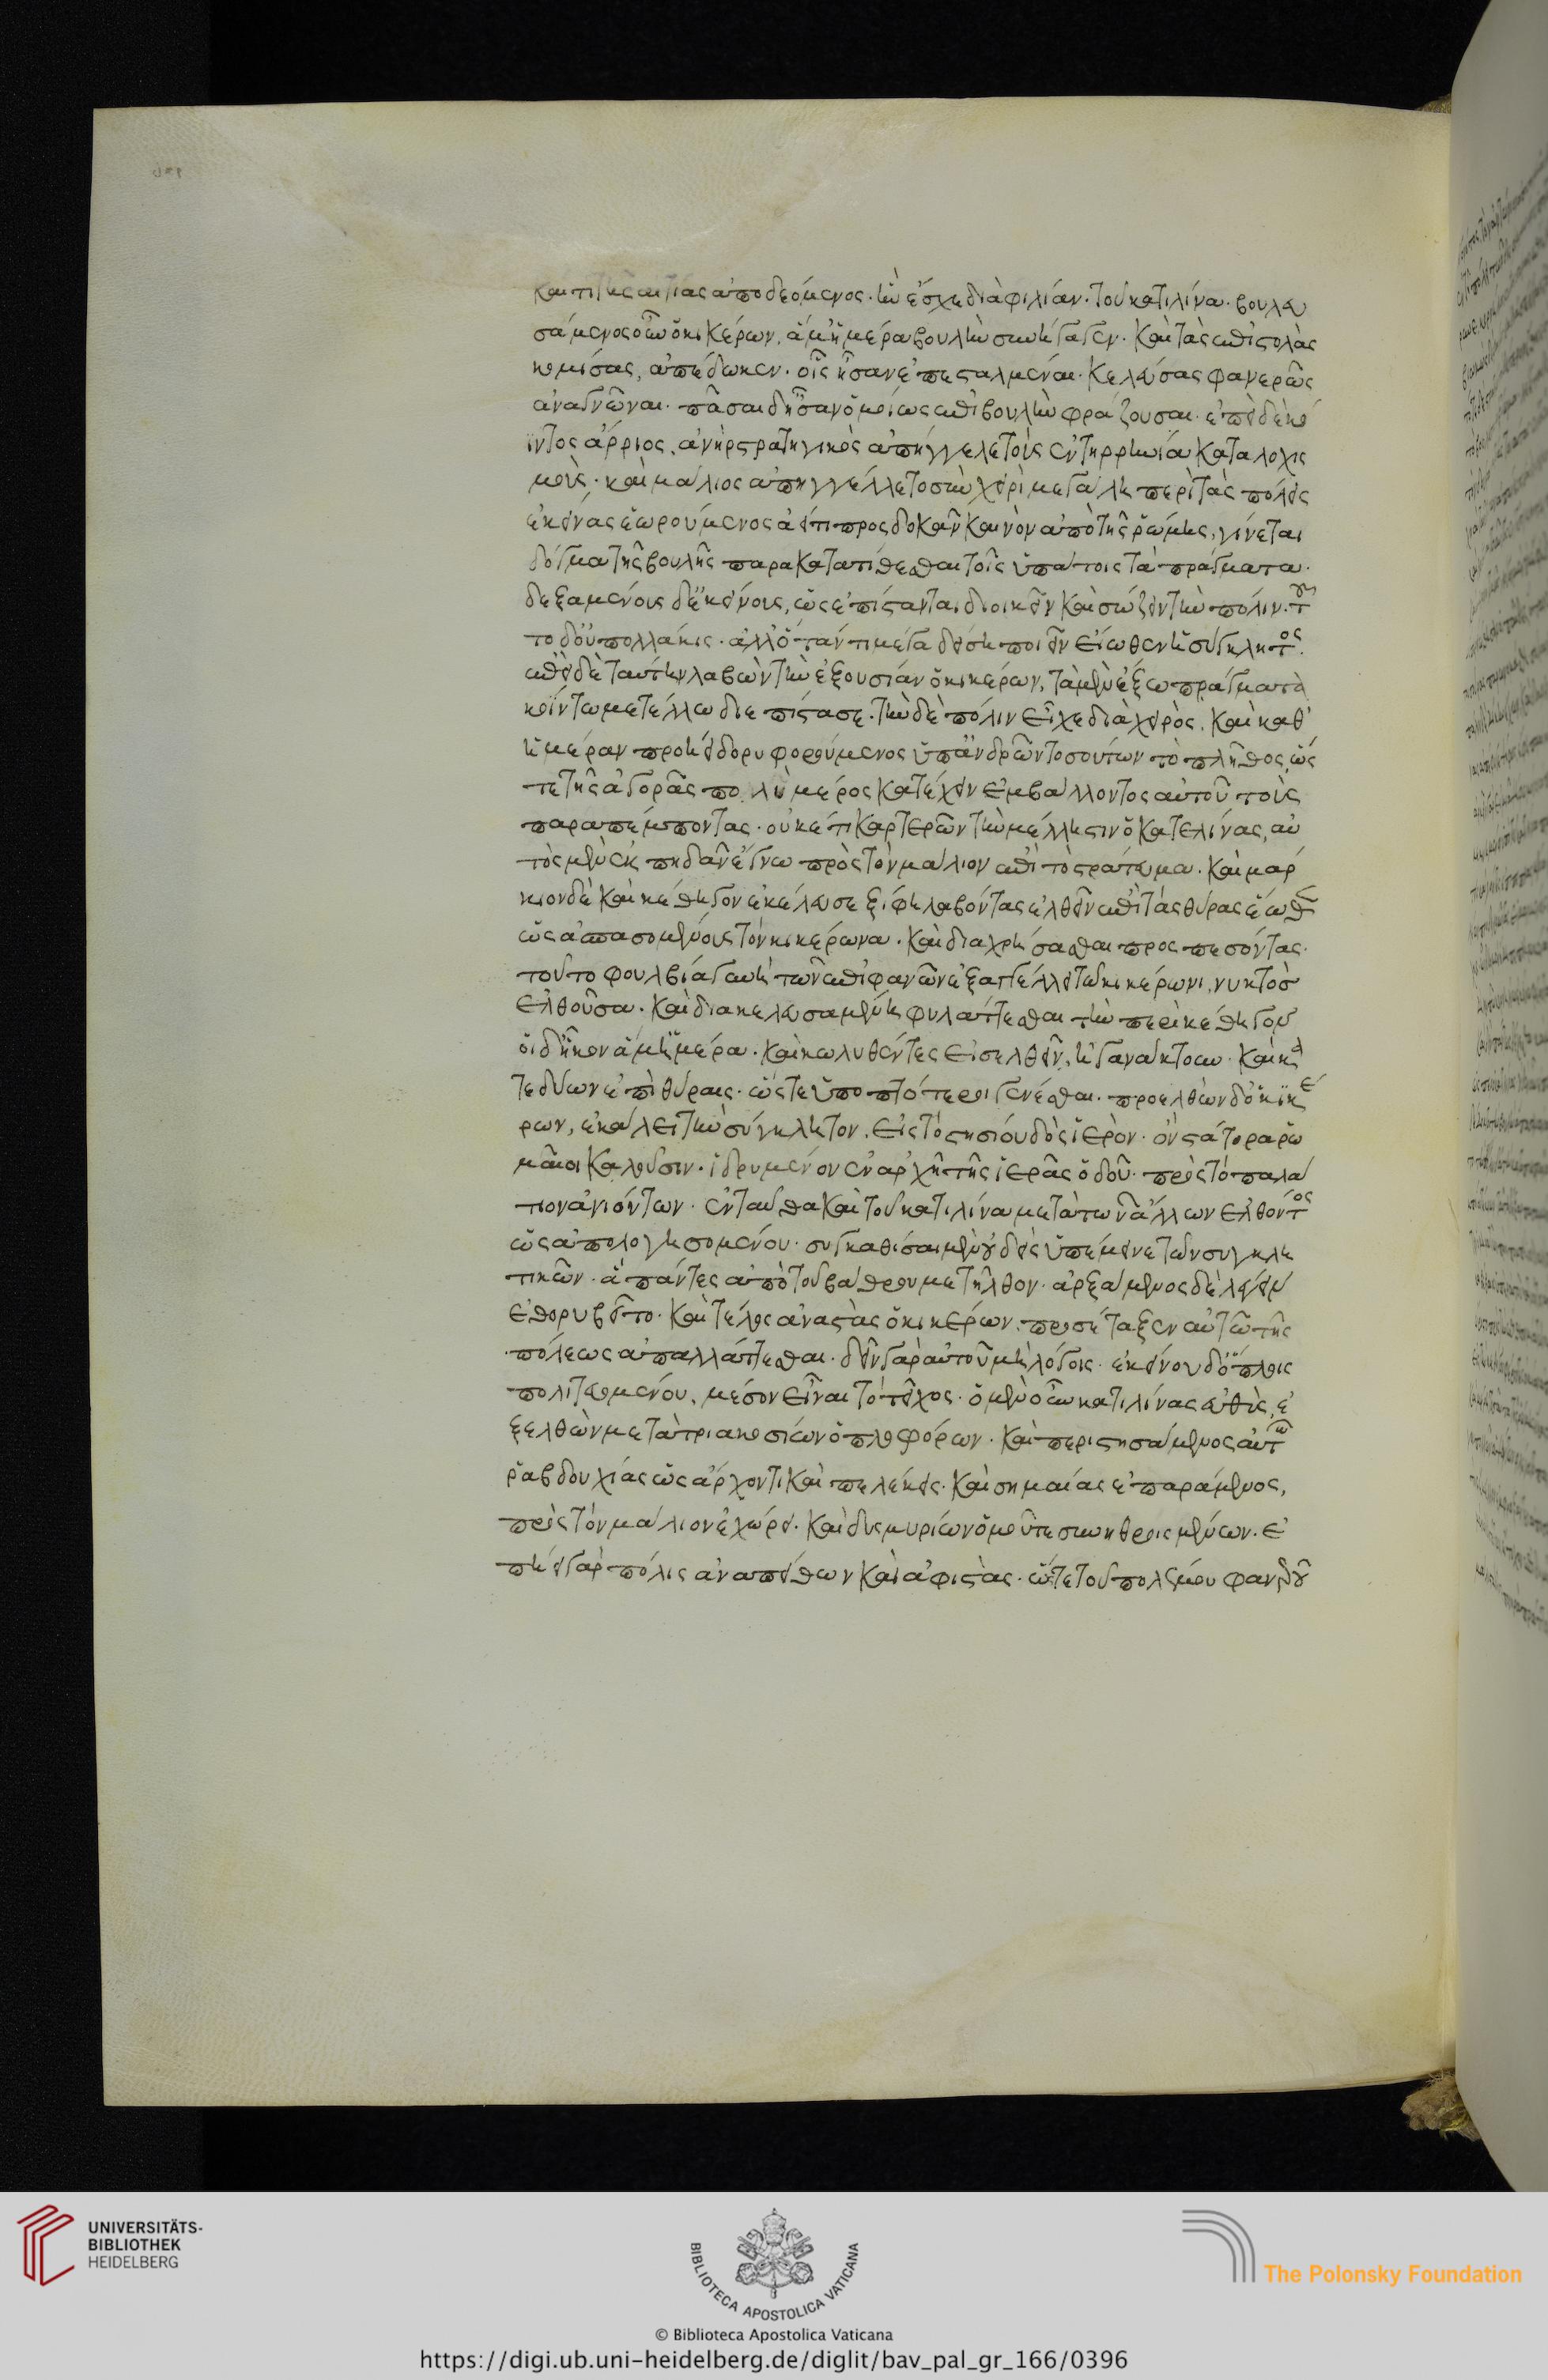 καί τι τῆς αἰτίας ἀποδεόμενος. ἣν ἔσχε διὰ φιλίαν. τοῦ κατιλίνα. βουλευ
σάμενος οὖν ὁ κικέρων, ἅμ ἡμέρα βουλὴν συνήγαγεν. καὶ τὰς ἐπιστολὰς
κομίσας, ἀπέδωκεν. οἷς ἦσαν ἐπεσταλμέναι. κελεύσας φανερῶς
ἀναγνῶναι. πᾶσαι δ ἦσαν ὁμοίως ἐπιβουλὴν φράζουσαι. ἐπεὶ δὲ κό
ιντος ἄρριος, ἀνὴρ στρατηγικὸς ἀπήγγελε τοὺς ἐν τηρρηνία καταλοχισ
μοὺς. καὶ μάλιος ἀπηγγέλλετο σὺν χειρὶ μεγάλη περὶ τὰς πόλεις
ἐκείνας ἑωρούμενος ἀεί τι προσδοκᾶν καινὸν ἀπὸ τῆς ῥώμης, γίνεται
δόγμα τῆς βουλῆς παρακατατίθεσθαι τοῖς ὑπάτοις τὰ πράγματα.
δεξαμένοις δ ἐκείνοις, ὡς ἐπίστανται διοικεῖν καὶ σώζειν τὴν πόλιν. τοῦ
το δ οὐ πολλάκις. ἀλλ ὅταν τι μέγα δείση ποιεῖν εἴωθεν ἡ σύγκλητος.
ἐπεὶ δὲ ταύτην λαβὼν τὴν ἐξουσίαν ὁ κικέρων, τὰ μὲν ἔξω πράγματα
κοίντω μετέλλω διεπίστασε. τὴν δὲ πόλιν εἶχε διὰ χειρὸς. καὶ καθ
ἡμέραν προήει δορυφορούμενος ὑπ ἀνδρῶν τοσούτων τὸ πλῆθος, ὥσ
τε τῆς ἀγορᾶς πολὺ μέρος κατέχειν ἐμβάλλοντος αὐτοῦ τοὺς
παραπέμποντας. οὐκέτι καρτερῶν τὴν μέλλησιν ὁ κατελίνας, αὐ
τὸς μὲν ἐκπηδᾶν ἔγνω πρὸς τὸν μάλιον ἐπὶ τὸ στράτευμα. καὶ μάρ
κιον δὲ καὶ κέθηγον ἐκέλευσε ξίφη λαβόντας ἐλθεῖν ἐπὶ τὰς θύρας ἕωθεν
ὡς ἀσπασομένους τὸν κικέρωνα. καὶ διαχρήσασθαι προσπεσόντας.
τοῦτο φουλβία γυνὴ τῶν ἐπιφανῶν ἐξαγγέλλει τῶ κικέρωνι, νυκτὸσ
ἐλθοῦσα. καὶ διακελευσαμένη φυλάττεσθαι τὴν περὶ κέθηγον
οἱ δ ἧκον ἅμ ἡμέρα. καὶ κωλυθέντες εἰσελθεῖν, ἠγανάκτουν. καὶ κα
τεβόων ἐπὶ θύραις. ὥστε ὑποπτότεροι γενέσθαι. προελθὼν δ ὁ κικέ
ρων, ἐκάλει τὴν σύγκλητον. εἰς τὸ στησίου διὸς ἱερὸν. ὃν στάτορα ῥω
μαῖοι καλοῦσιν. ἱδρυμένον ἐν ἀρχῆ τῆς ἱερᾶς ὁδοῦ. πρὸς τὸ παλά
τιον ἀνιόντων. ἐνταῦθα καὶ τοῦ κατιλίνα μετὰ τῶν ἄλλων ἐλθόντος
ὡς ἀπολογησομένου. συγκαθίσαι μὲν οὐδεὶς ὑπέμεινε τῶν συγκλη
τικῶν. ἀ πάντες ἀπὸ τοῦ βάθρου μετῆλθον. ἀρξάμενος δὲ λέγειν
ἐθορυβεῖτο. καὶ τέλος ἀναστὰς ὁ κικέρων, προσέταξεν αὐτῶ τῆς
πόλεως ἀπαλλάττεσθαι. δεῖν γὰρ αὐτοῦ μὴ λόγοις. ἐκείνου δ ὅπλοις
πολιτευομένου, μέσον εἶναι τὸ τεῖχος. ὁ μὲν οὖν κατιλίνας εὐθὺς, ἐ
ξελθὼν μετὰ τριακοσίων ὁπλοφόρων. καὶ περιστησάμενος αὑτῶ
ῥαβδουχίας ὡς ἄρχοντι καὶ πελέκεις. καὶ σημαίας ἐπαράμενος,
πρὸς τὸν μάλιον ἐχώρει. καὶ δισμυρίων ὁμοῦ τι συνηθροισμένων. ἐ
πήει γὰρ πόλις ἀναπείθων καὶ ἀφιστὰς. ὥστε τοῦ πολέμου φανεροῦ
UNIVERSITÄTS-
BIBLIOTHEK
HEIDELBERG
BIBLIOTECA APOSTOLICA VATICANA
The Polonsky Foundation
© Biblioteca Apostolica Vaticana
https://digi.ub.uni-heidelberg.de/diglit/bav_pal_gr_166/0396